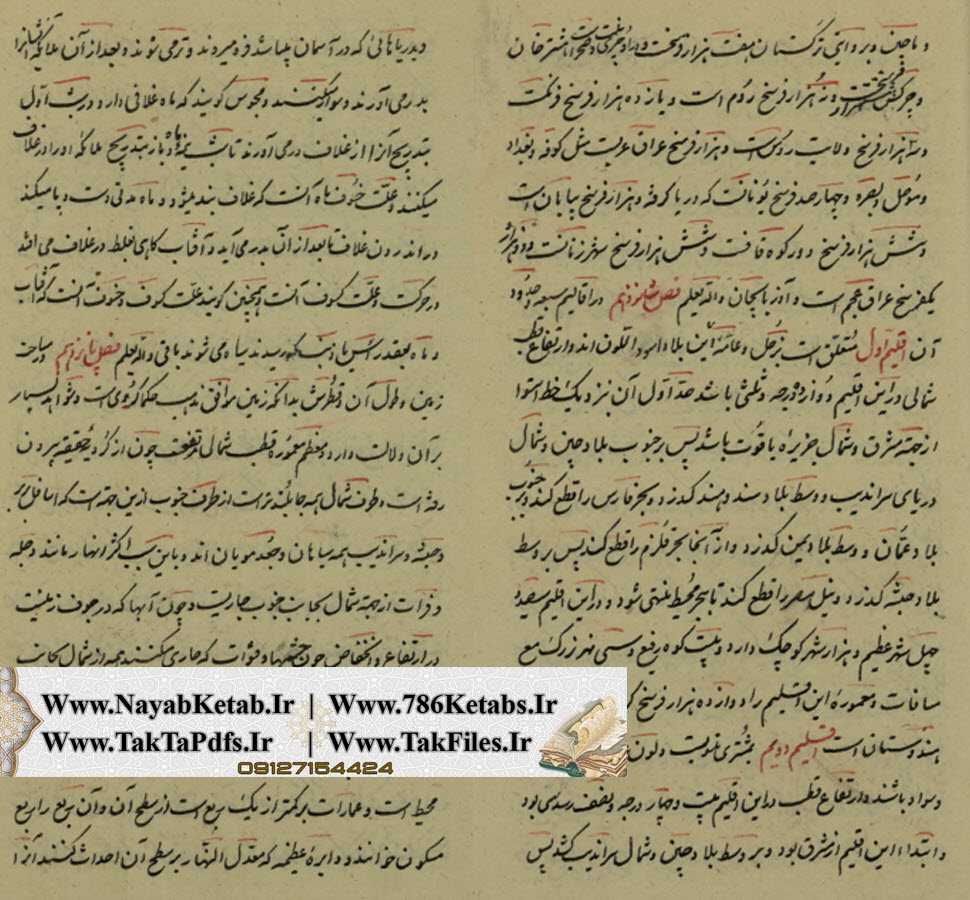 و ماچین و بروایتی ترکستان هفت هزار فرسخ است
و سه هزار فرسخ روم است و یازده هزار فرسخ فرنک است
و سه هزار فرسخ ولایت روس است و هزار فرسخ عراق عربست مثل کوفه و بغداد
و موصل و بصره و چهار صد فرسخ یونانست که دریا گرفته و هزار فرسخ بیابان است
و شش هزار فرسخ و در کوه قافست و شش هزار فرسخ شهر زنانست
یکهزار فرسخ عراق عجم است و آذربایجان والله یعلم فصل شانزدهم در اقالیم سبعه و حدود
آن اقلیم اول متعلق است بزحل و عامه این بلاد اسود اللون اند و ارتفاع قطب
شمالی در این اقلیم دوازده درجه و ثلثی باشد حد اول آن نزدیک خط استوا
از جهة مشرق و شمال جزیره یاقوت باشد پس بر جنوب بلاد چین و شمال
دریای سراندیب و وسط بلاد سند و هند گذرد و بحر فارس را قطع کند و بر جنوب
بلاد عمان و وسط بلاد یمن گذرد و از آنجا بحر قلزم را قطع کند پس بر وسط
بلاد حبشه گذرد و نیل مصر را قطع کند تا ببحر محیط منتهی شود و در این اقلیم
چهل شهر عظیم و هزار شهر کوچک دارد و بیست کوه رفیع و سی نهر بزرگ مع
مسافات و معموره این اقلیم را دوازده هزار فرسخ
هندوستان است اقلیم دویم بمشتری منسوبست و لون
و سواد باشند و ارتفاع قطب در این اقلیم بیست و چهار درجه و نصف و سدسی بود
و ابتداء این اقلیم از مشرق بود و بر وسط بلاد چین و شمال سراندیب کشد پس
و بدریاهائی که در آسمان میباشد فرو میروند و تر می شوند و بعد از آن ملائکه ایشانرا
بدر می آورند و سوار میکنند و مجوس گویند که ماه غلافی دارد و در شب اول
بتدریج آنرا از غلاف در می آورند تا شب نیمه ماه و باز بتدریج ملائکه او را در غلاف
میکنند و علت خسوف ماه آنست که غلاف بند میشود و ماه مدتی دست و پا میکند
در اندرون غلاف تا بعد از آن بدر می آید و آفتاب گاهی بغلط در غلاف می افتد
در حرکت و علت کسوف آنست و همچنین گویند علت کسوف و خسوف آنست که آفتاب
و ماه بعقده رأس یا ذنب که رسیدند سیاه می شوند باقی والله یعلم فصل پانزدهم در مساحت
زمین و طول آن و قطرش بدانکه زمین موافق مذهب حکما کروی است و شواهد بسیار
بر آن دلالت دارد و معظم معموره قطب شمالی مرتفعست چون از کرویت حقیقیه بیرون
رفته است و طرف شمال همه جا بلندتر است از طرف جنوب از این جهة است که اهل بربر
و حبشه و سراندیب همه سیاهان و جعد مویان اند و باین سبب اکثر انهار مانند دجله
و فرات از جهة شمال بجانب جنوب جاریست و چون آبها که در جوف زمینست
در ارتفاع و انخفاض چون چشمها و قنوات که جاری میکنند همه از شمال بجانب
Www.NayabKetab.Ir | Www.786Ketabs.Ir
Www.TakTaPdfs.Ir | Www.TakFiles.Ir
09127154424
محیط است و عمارات بر کمتر از یک ربع است از سطح آن و آن ربع را ربع
مسکون خوانند و دایره عظیمه که معدل النهار بر سطح آن احداث کنند آنرا